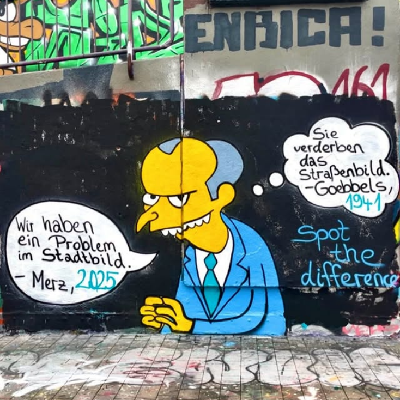 ENRICA!
161
Sie
verderben
das
Straßenbild.
-Goebbels,
1941
Wir haben
ein Problem
im Stadtbild.
- Merz, 2025
Spot
the
difference